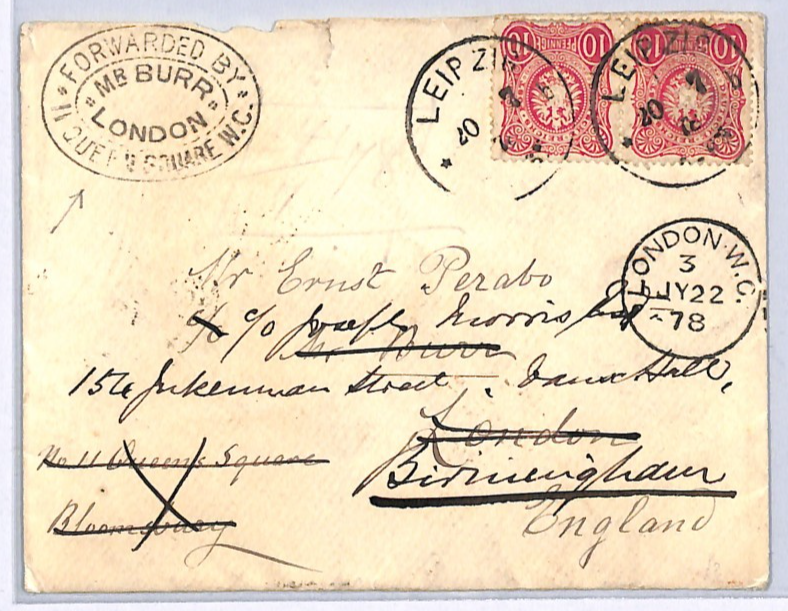 FORWARDED BY
"MR BURR"
LONDON
11 QUEEN SQUARE W.C.
LEIPZIG
20 7
LEIPZIG
20 7
10 PFENNIG 10
10 10
LONDON·W.C.
3
JY22
78
Mr Ernst Perabo
c/o c/o Joseph Morris Esq
Mr Burr
156 Street, Vauxhall,
London
No 11 Queens Square
Birmingham
Bloomsbury
England